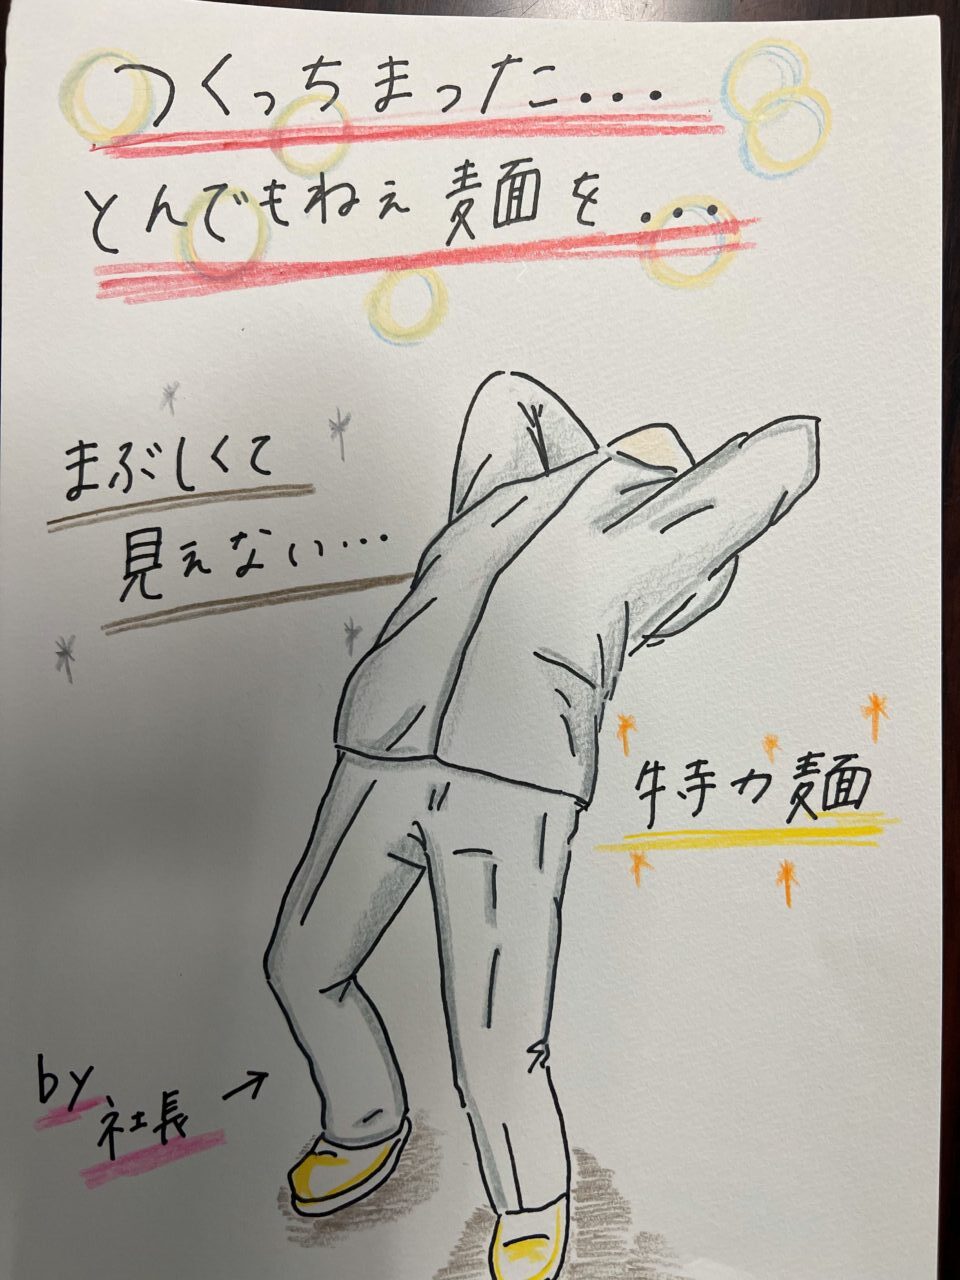 つくっちまった...
とんでもねぇ麺を...
まぶしくて
見えない...
特力麺
by
社長